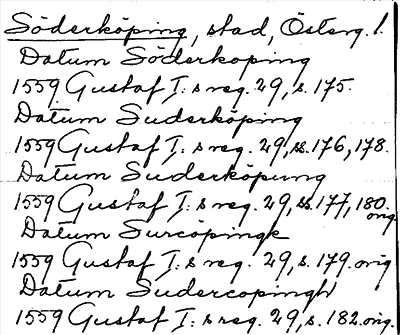 Söderköping, stad, Österg. l.
Datum Söderkoping
1559 Gustaf I:s reg. 29, s. 175.
Datum Suderköping
1559 Gustaf I:s reg. 29, ss. 176, 178.
Datum Suderköpung
1559 Gustaf I:s reg. 29, ss. 177, 180. orig.
Datum Surcöpingk
1559 Gustaf I:s reg. 29, s. 179. orig
Datum Sudercopingh
1559 Gustaf I:s reg. 29, s. 182. orig.